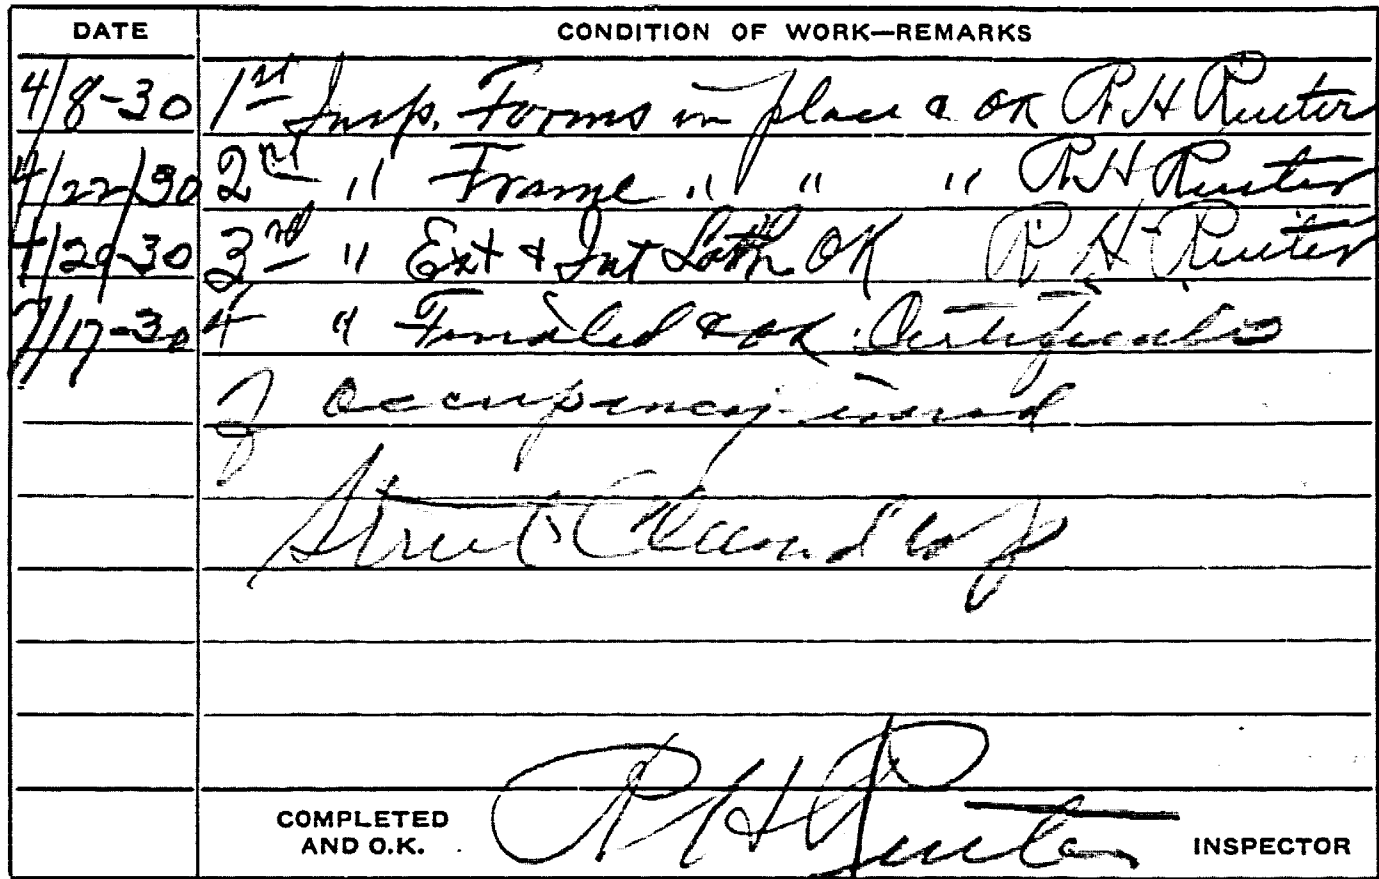 DATE CONDITION OF WORK—REMARKS
4/8-30 1st Insp. Forms in place & OK R H Reuter
4/22/30 2nd " Frame " " " R H Reuter
4/29-30 3rd " Ext & Int Lath OK R H Reuter
7/17-30 4 " Finished & ok. Certificate
of occupancy issued
Street Cleaned
COMPLETED
AND O.K. R H Reuter INSPECTOR